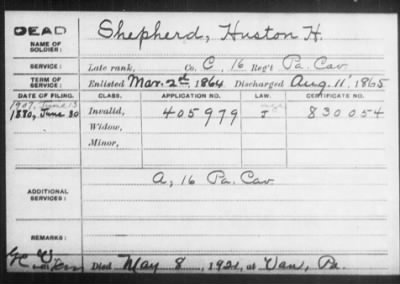 DEAD
NAME OF SOLDIER: Shepherd, Huston H.
SERVICE: Late rank, Co. C, 16 Reg't Pa. Cav.
TERM OF SERVICE: Enlisted Mar. 2d, 1864 Discharged Aug. 11, 1865
DATE OF FILING. CLASS. APPLICATION NO. LAW. CERTIFICATE NO.
1907, June 13
1880, June 30 Invalid, 405979 J 830054
Widow,
Minor,
ADDITIONAL SERVICES: A, 16 Pa. Cav.
REMARKS:
Died May 8, 1921, at Van, Pa.